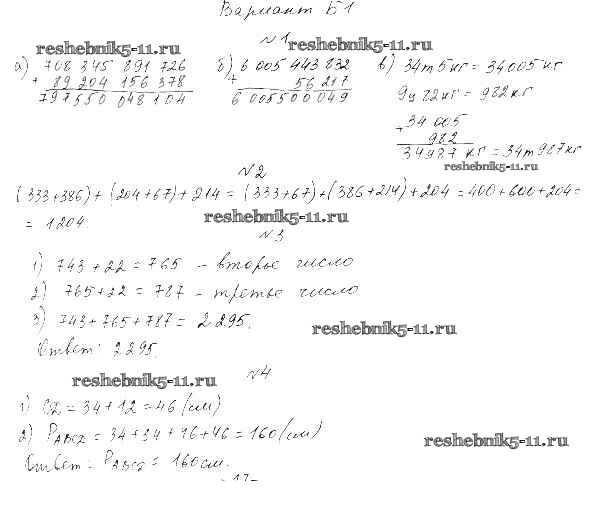 Вариант Б1
№1
reshebnik5-11.ru
reshebnik5-11.ru
а) 708 345 891 726
+ 89 204 156 378
797 550 048 104
б) 6 005 443 832
+ 56 217
6 005 500 049
в) 34т5кг = 34005кг
9ц 82кг = 982кг
+ 34 005
982
34987 кг = 34т 987кг
reshebnik5-11.ru
№2
(333+386) + (204+67) + 214 = (333+67)+(386+214)+204 = 400+600+204=
= 1204.
reshebnik5-11.ru
№3
1) 743 + 22 = 765 - второе число
2) 765+22 = 787 - третье число
3) 743+765+787 = 2295.
reshebnik5-11.ru
Ответ: 2295.
reshebnik5-11.ru
№4
1) = 34 + 12 = 46 (см)
2) = 34 + 34 + 46 + 46 = 160 (см)
reshebnik5-11.ru
Ответ: = 160 см.
- 17 -